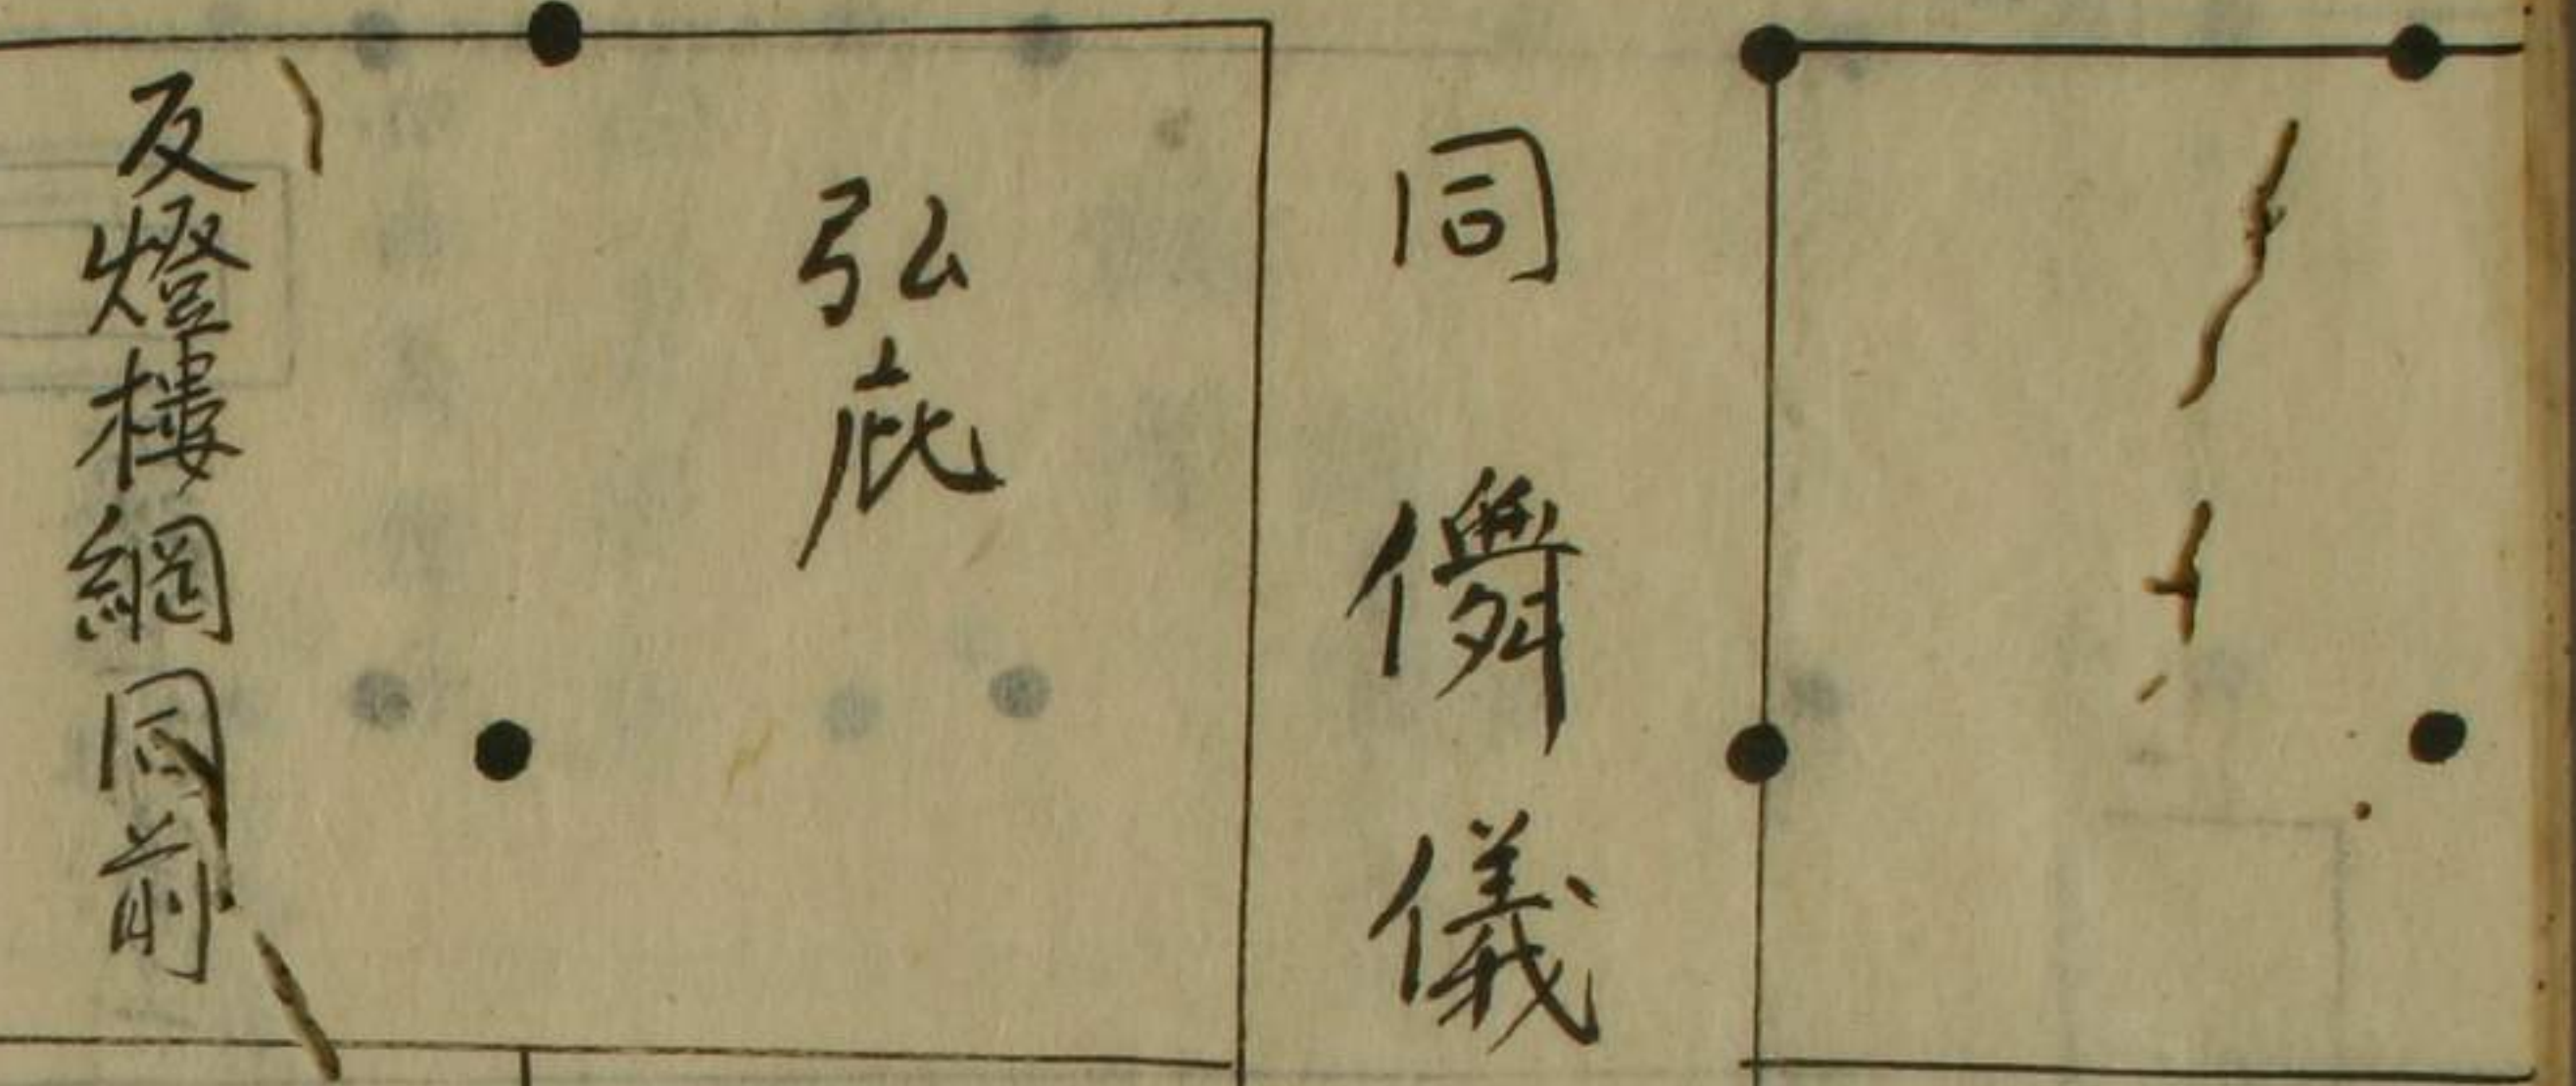 同儛儀
弘庇
反燈樓綱同前